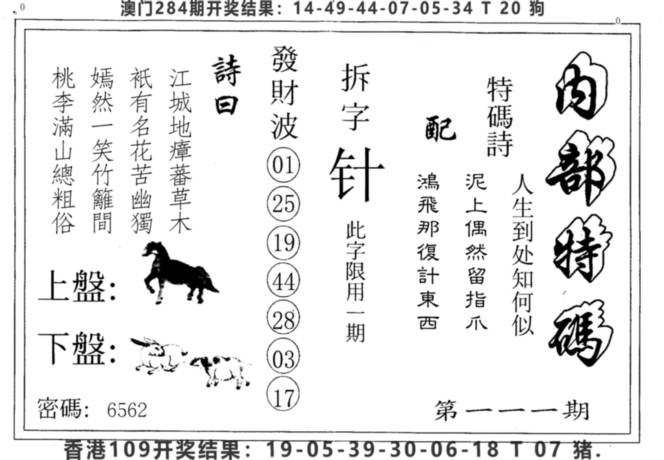 澳门284期开奖结果：14-49-44-07-05-34 T 20 狗
內部特碼
特碼詩
人生到处知何似
泥上偶然留指爪
鴻飛那復計東西
配
拆字
针
此字限用一期
發財波
01
25
19
44
28
03
17
詩曰
江城地瘴蕃草木
衹有名花苦幽獨
嫣然一笑竹籬間
桃李滿山總粗俗
上盤：
下盤：
密碼：6562
第一一一期
香港109开奖结果：19-05-39-30-06-18 T 07 猪.